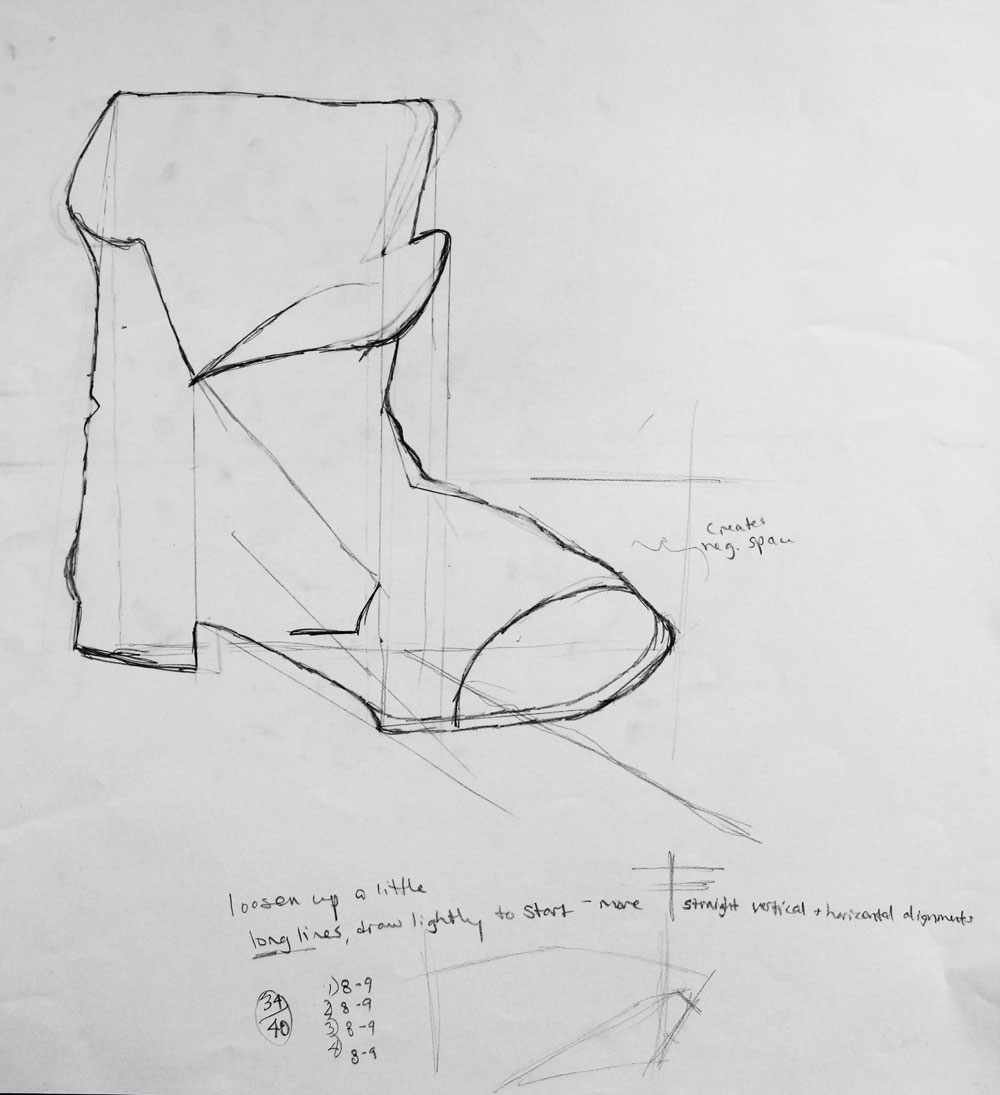 Creates
neg. space
loosen up a little
long lines, draw lightly to start - more straight vertical + horizontal alignments
34
40
1) 8-9
2) 8-9
3) 8-9
4) 8-9